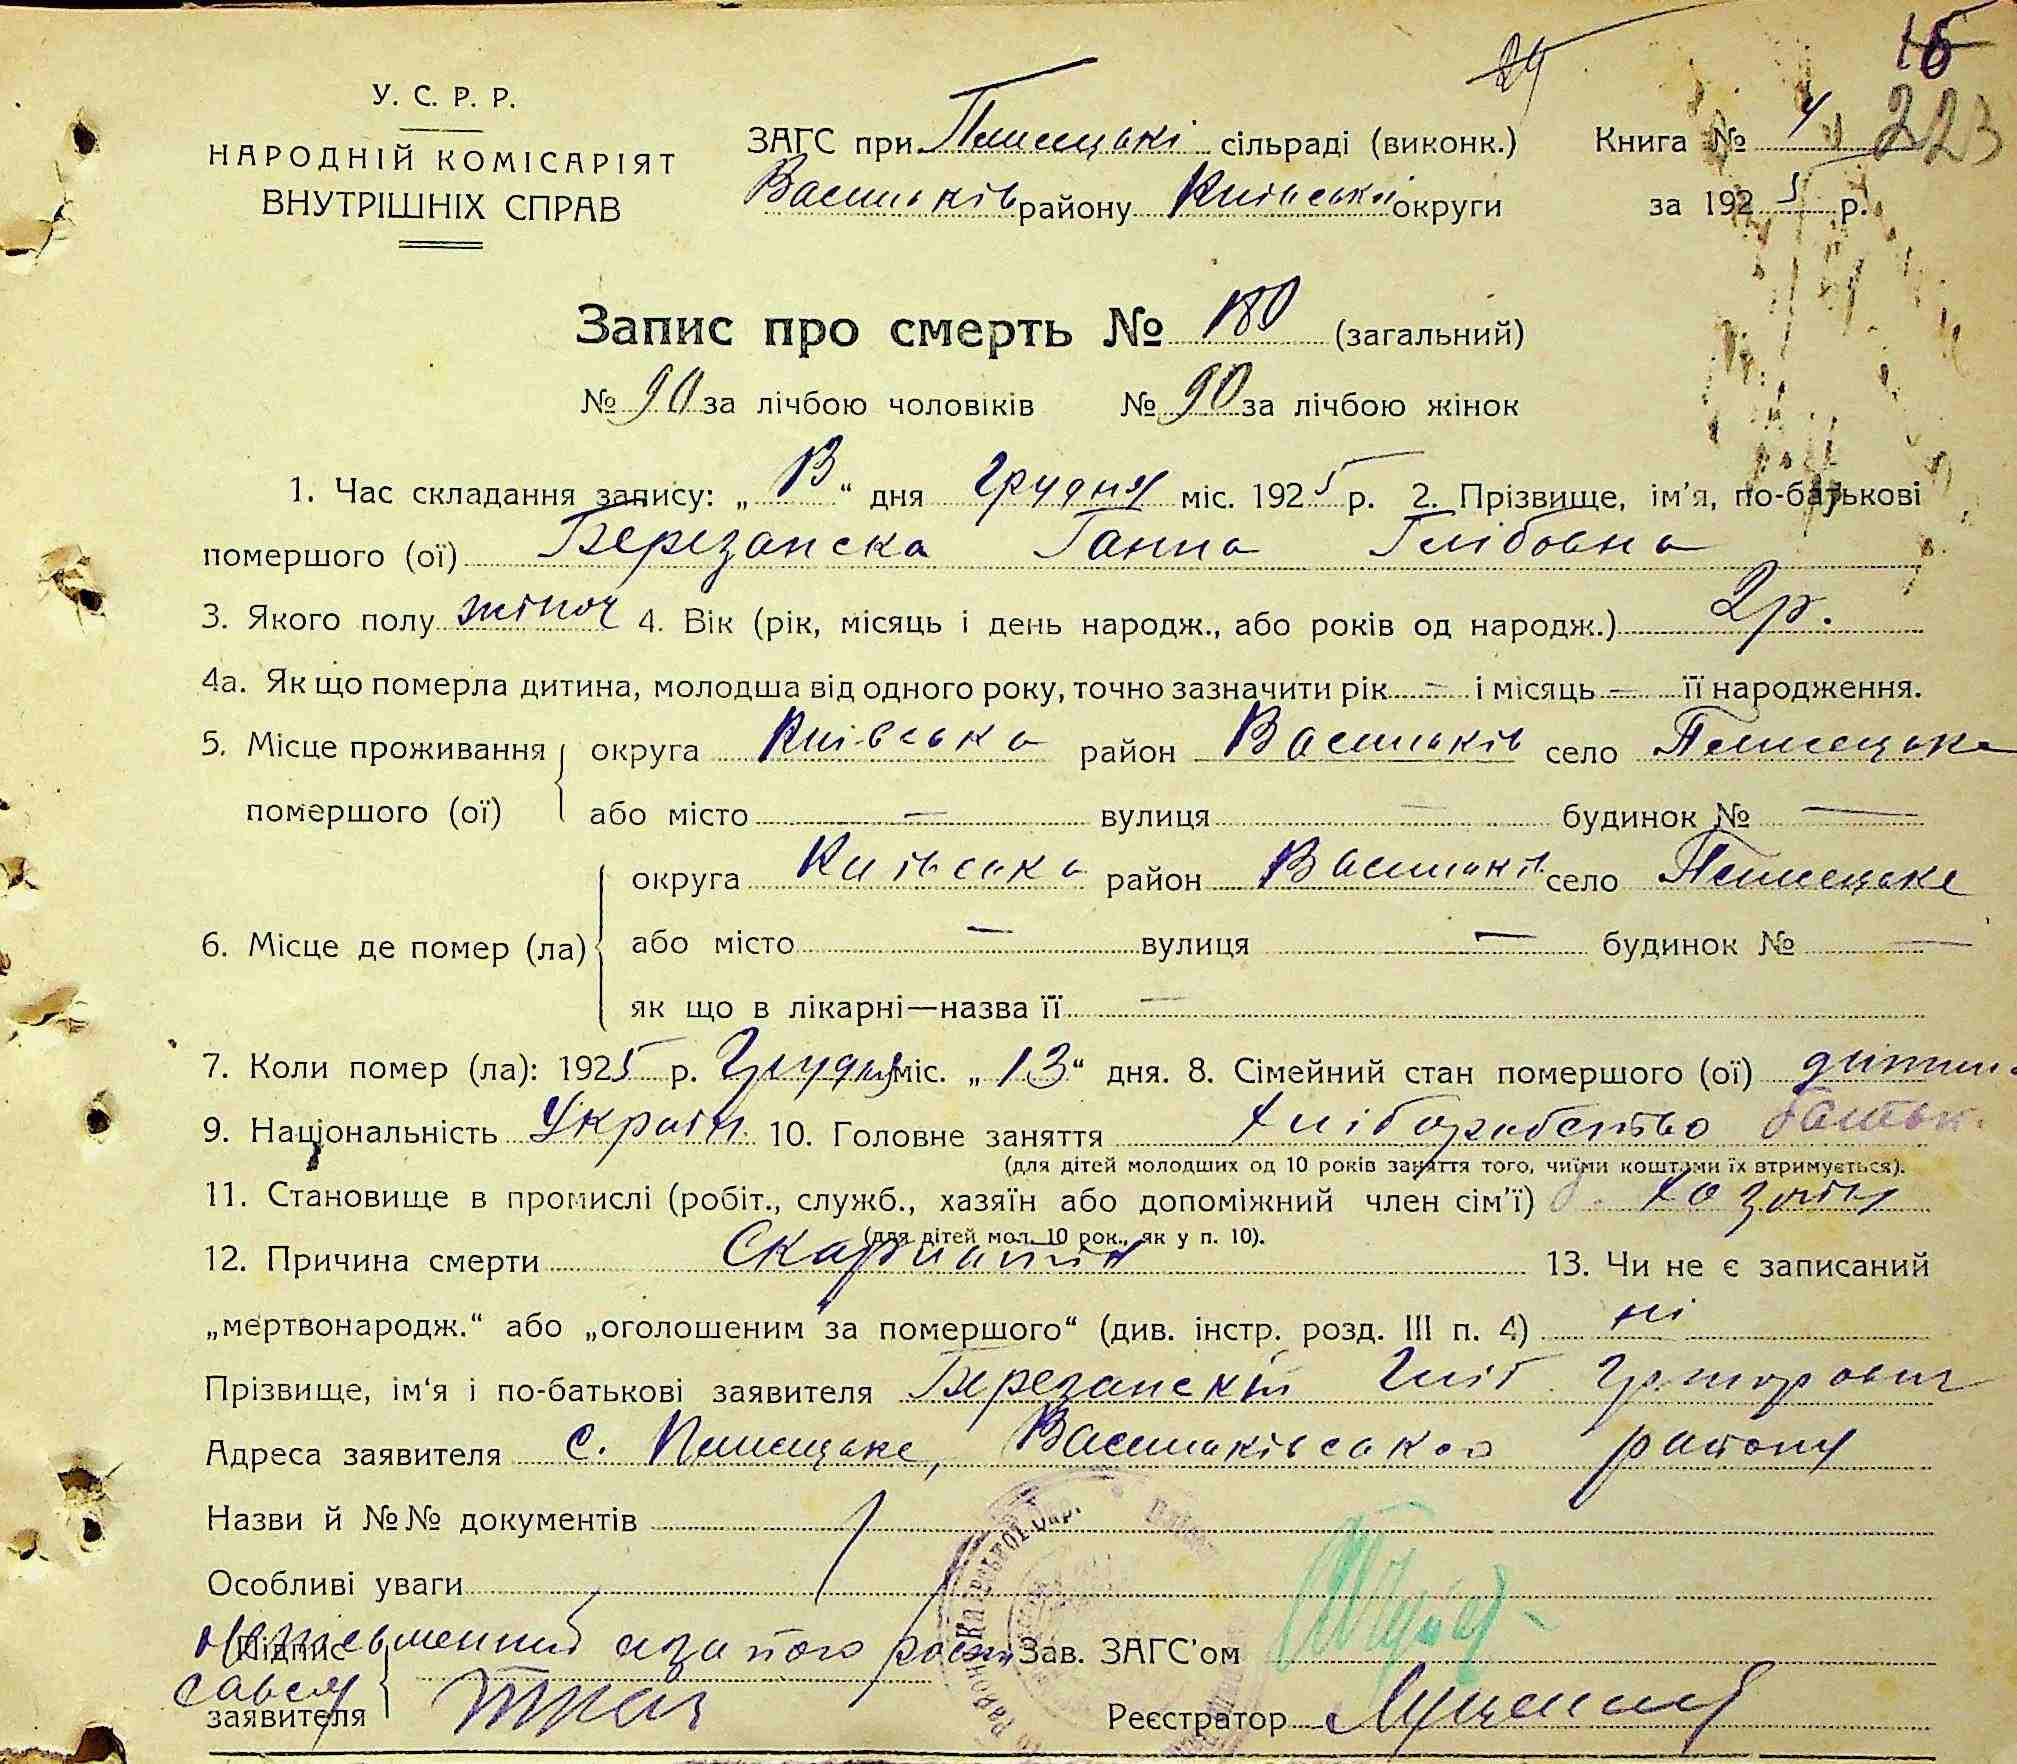 24
15
223
У. С. Р. Р.
НАРОДНІЙ КОМІСАРІЯТ
ВНУТРІШНІХ СПРАВ
ЗАГС при Плисецькі сільраді (виконк.)
Васильків району Київської округи
Книга № 4
за 1925 р.
Запис про смерть № 180 (загальний)
№ 90 за лічбою чоловіків № 90 за лічбою жінок
1. Час складання запису: „ “ дня Грудня міс. 1925 р. 2. Прізвище, ім'я, по-батькові
помершого (ої) Березанска Ганна Глібовна
3. Якого полу жіноч 4. Вік (рік, місяць і день народж., або років од народж.) 2 р.
4а. Як що померла дитина, молодша від одного року, точно зазначити рік — і місяць — її народження.
5. Місце проживання помершого (ої) округа Київська район Васильків село Плисецьке
або місто — вулиця — будинок № —
6. Місце де помер (ла) округа Київська район Васильків село Плисецьке
або місто — вулиця — будинок № —
як що в лікарні—назва її —
7. Коли помер (ла): 1925 р. Грудня міс. „13“ дня. 8. Сімейний стан помершого (ої) дитина
9. Національність Україн 10. Головне заняття хліборобство батьк.
(для дітей молодших од 10 років заняття того, чиїми коштами їх втримується).
11. Становище в промислі (робіт., служб., хазяїн або допоміжний член сім'ї) хозяїн
(для дітей мол. 10 рок., як у п. 10).
12. Причина смерти Скарлатин 13. Чи не є записаний
„мертвонародж.“ або „оголошеним за помершого“ (див. інстр. розд. III п. 4) ні
Прізвище, ім'я і по-батькові заявителя Березанскій Гліб Григорович
Адреса заявителя с. Плисецьке, Васильківського району
Назви й №№ документів
Особливі уваги
Підпис заявителя неписьменний а за його росписався
Зав. ЗАГС'ом
Реєстратор